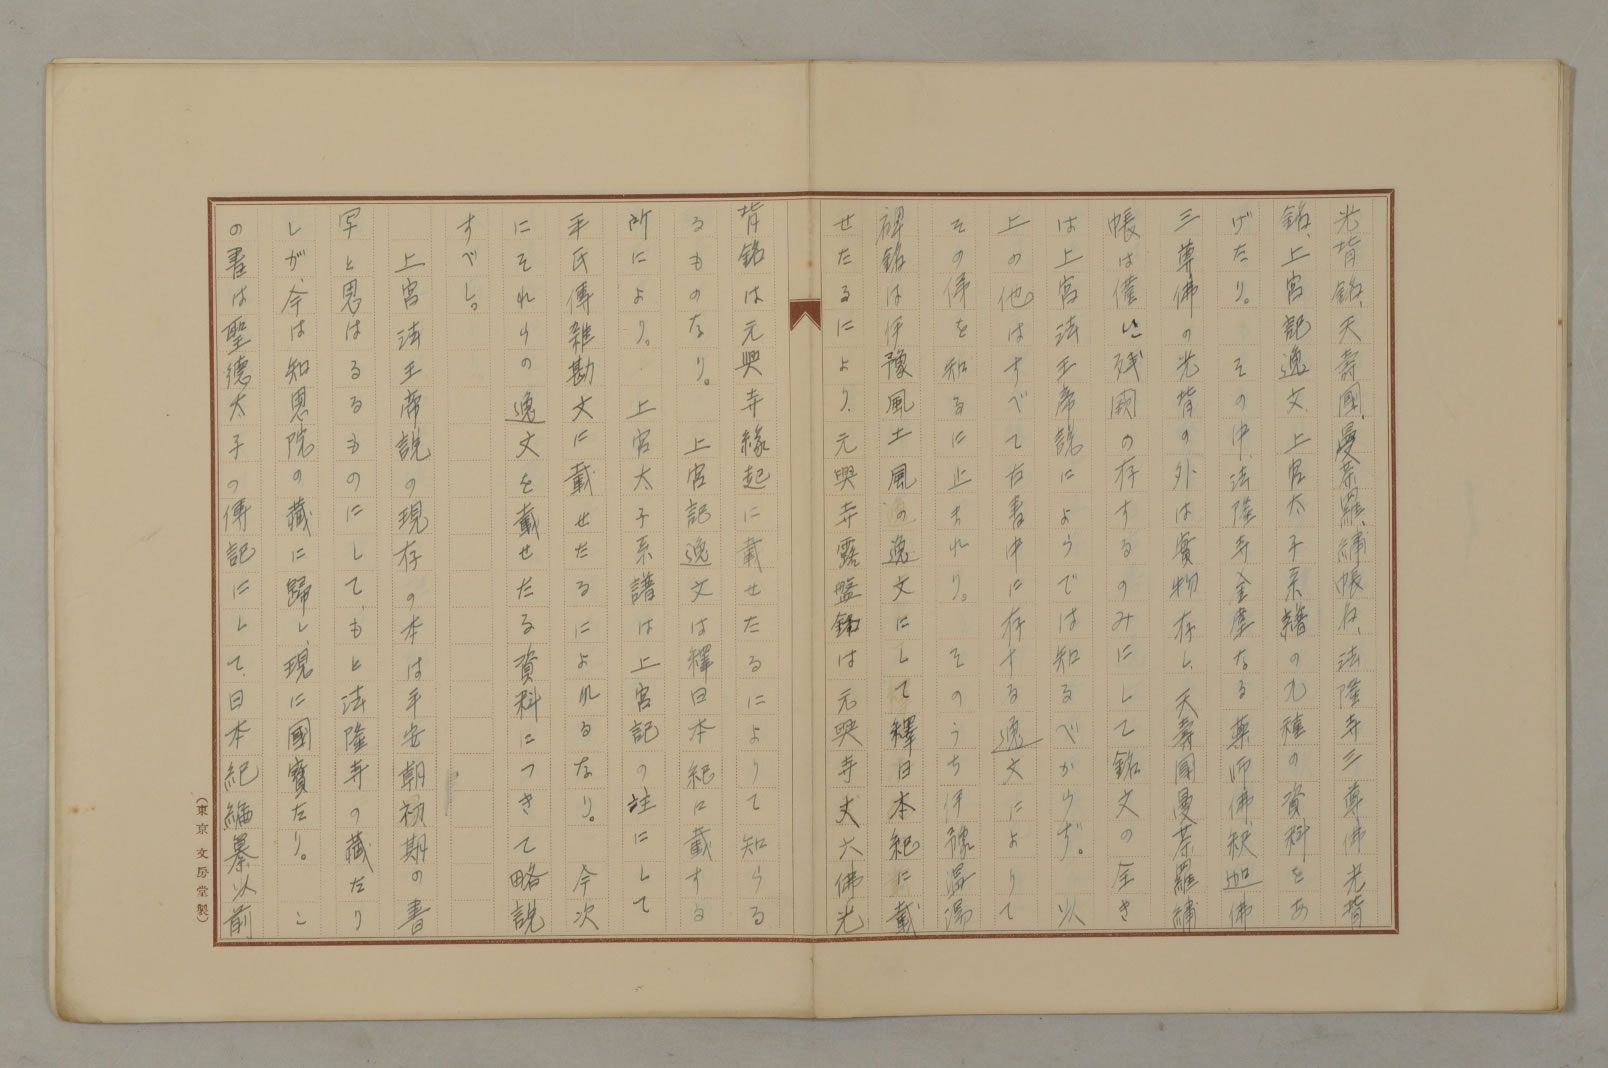 光背銘、天壽國、曼荼羅、繍帳銘、法隆寺三尊佛光背
銘、上宮記逸文、上宮太子系譜の九種の資料をあ
げたり。 その中、法隆寺金堂なる藥師佛釈迦佛
三尊佛の光背の外は實物存し、天壽國曼荼羅繍
帳は僅に残闕の存するのみにして銘文の全き
は上宮法王帝説によらでは知るべからず。 以
上の他はすべて古書中に存する逸文によりて
その俤を知るに止まれり。 そのうち伊豫温湯
碑銘は伊豫風土風の逸文にして釋日本紀に載
せたるにより、元興寺露盤銘は元興寺丈六佛光
背銘は元興寺緣起に載せたるによりて知らる
るものなり。 上宮記逸文は釋日本紀に載する
所により。 上宮太子系譜は上宮記の註にして
平氏傳雜勘文に載せたるによれるなり。 今次
にそれらの逸文を載せたる資料につきて略説
すべし。
上宮法王帝説の現存の本は平安朝初期の書
写と思はるるものにしても、もと法隆寺の藏たり
しが、今は知恩院の藏に歸し、現に國寶たり。 こ
の書は聖德太子の傳記にして、日本紀編纂以前
（東京 文房堂製）